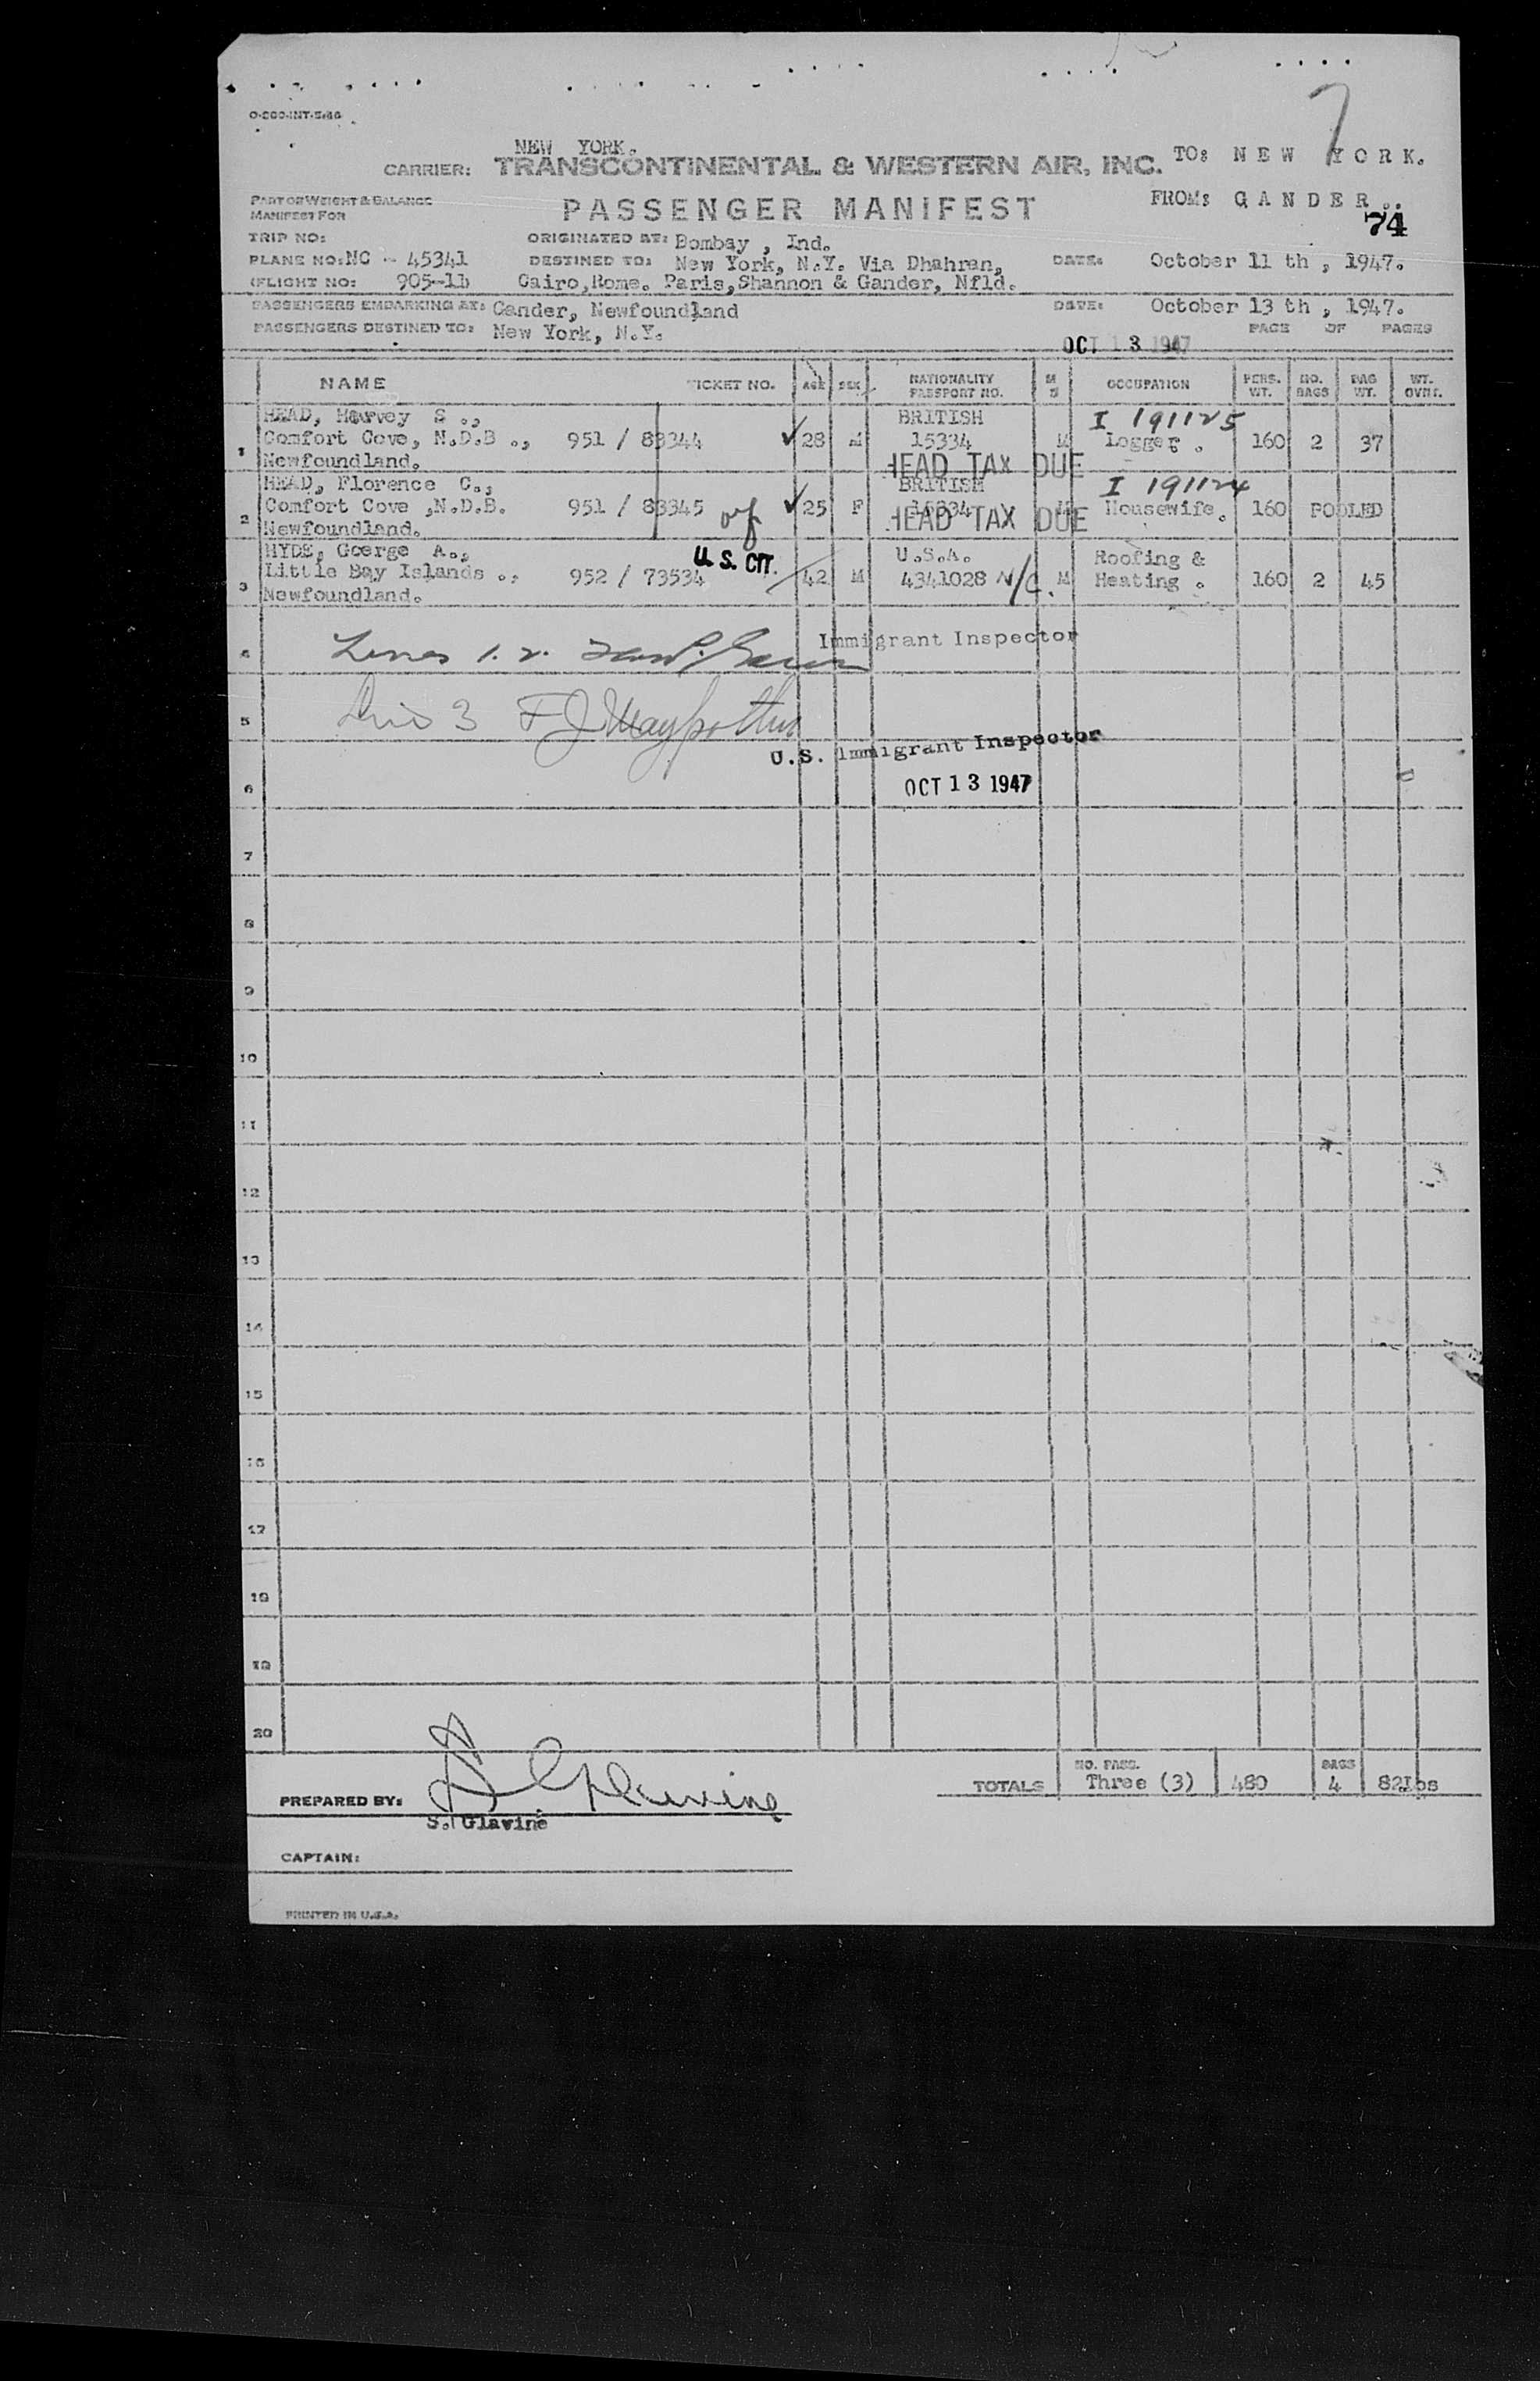 O-200-INT-5-46
7
NEW YORK.
CARRIER: TRANSCONTINENTAL & WESTERN AIR, INC. TO: NEW YORK.
PART OF WEIGHT & BALANCE
MANIFEST FOR
PASSENGER MANIFEST FROM: GANDER..
74
TRIP NO: ORIGINATED AT: Bombay , Ind.
PLANE NO: NC - 45341 DESTINED TO: New York, N.Y. Via Dhahran, DATE: October 11 th , 1947.
FLIGHT NO: 905-11 Cairo,Rome. Paris,Shannon & Gander, Nfld.
PASSENGERS EMBARKING AT: Gander, Newfoundland DATE: October 13 th , 1947.
PASSENGERS DESTINED TO: New York, N.Y. PAGE OF PAGES
OCT 13 1947
NAME TICKET NO. AGE SEX NATIONALITY PASSPORT NO. M S OCCUPATION PERS. WT. NO. BAGS BAG WT. WT. OVHT.
HEAD, Harvey S ., BRITISH I 191125
1 Comfort Cove, N.D.B ., 951 / 83344 ✓ 28 M 15334 M Logger . 160 2 37
Newfoundland. HEAD TAX DUE
HEAD, Florence C., BRITISH I 191124
2 Comfort Cove ,N.D.B. 951 / 83345 ✓ 25 F 15334 M Housewife. 160 POOLED
Newfoundland. HEAD TAX DUE
HYDE, George A., U.S. CIT. U.S.A. Roofing &
3 Little Bay Islands ., 952 / 73534 42 M 4341028 N/C. M Heating . 160 2 45
Newfoundland.
4 Lines 1. 2. Immigrant Inspector
5 Line 3 F J Maypother
U.S. Immigrant Inspector
6 OCT 13 1947
7
8
9
10
11
12
13
14
15
16
17
18
19
20
TOTALS NO. PASS. Three (3) 480 BAGS 4 82Lbs
PREPARED BY: S Glavine
S. Glavine
CAPTAIN:
PRINTED IN U.S.A.